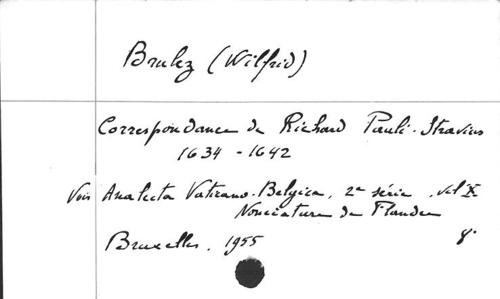 Brulez (Wilfrid)
Correspondance de Richard Pauli-Stravius
1634 - 1642
Voir Analecta Vaticano-Belgica, 2e série, vol X
Nonciature de Flandre
Bruxelles, 1955 8°